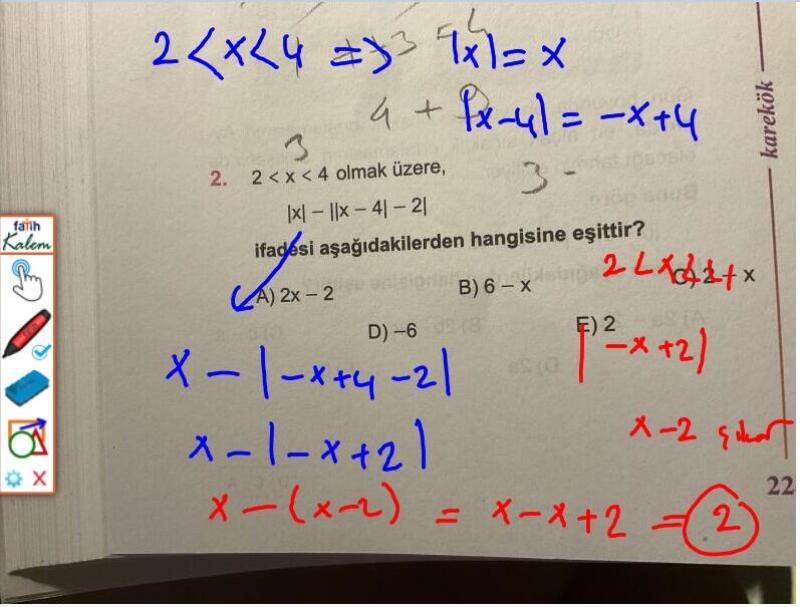 2 < x < 4 => |x| = x
4 + |x-4| = -x+4
3
2. 2 < x < 4 olmak üzere, 3 -
|x| – ||x – 4| – 2|
ifadesi aşağıdakilerden hangisine eşittir?
2 < x < 4
A) 2x – 2 B) 6 – x C) 2 – x
D) –6 E) 2
fatih
Kalem
karekök
x - |-x+4-2| |-x+2|
x - |-x+2| x-2 çıkar
x - (x-2) = x-x+2 = 2
22